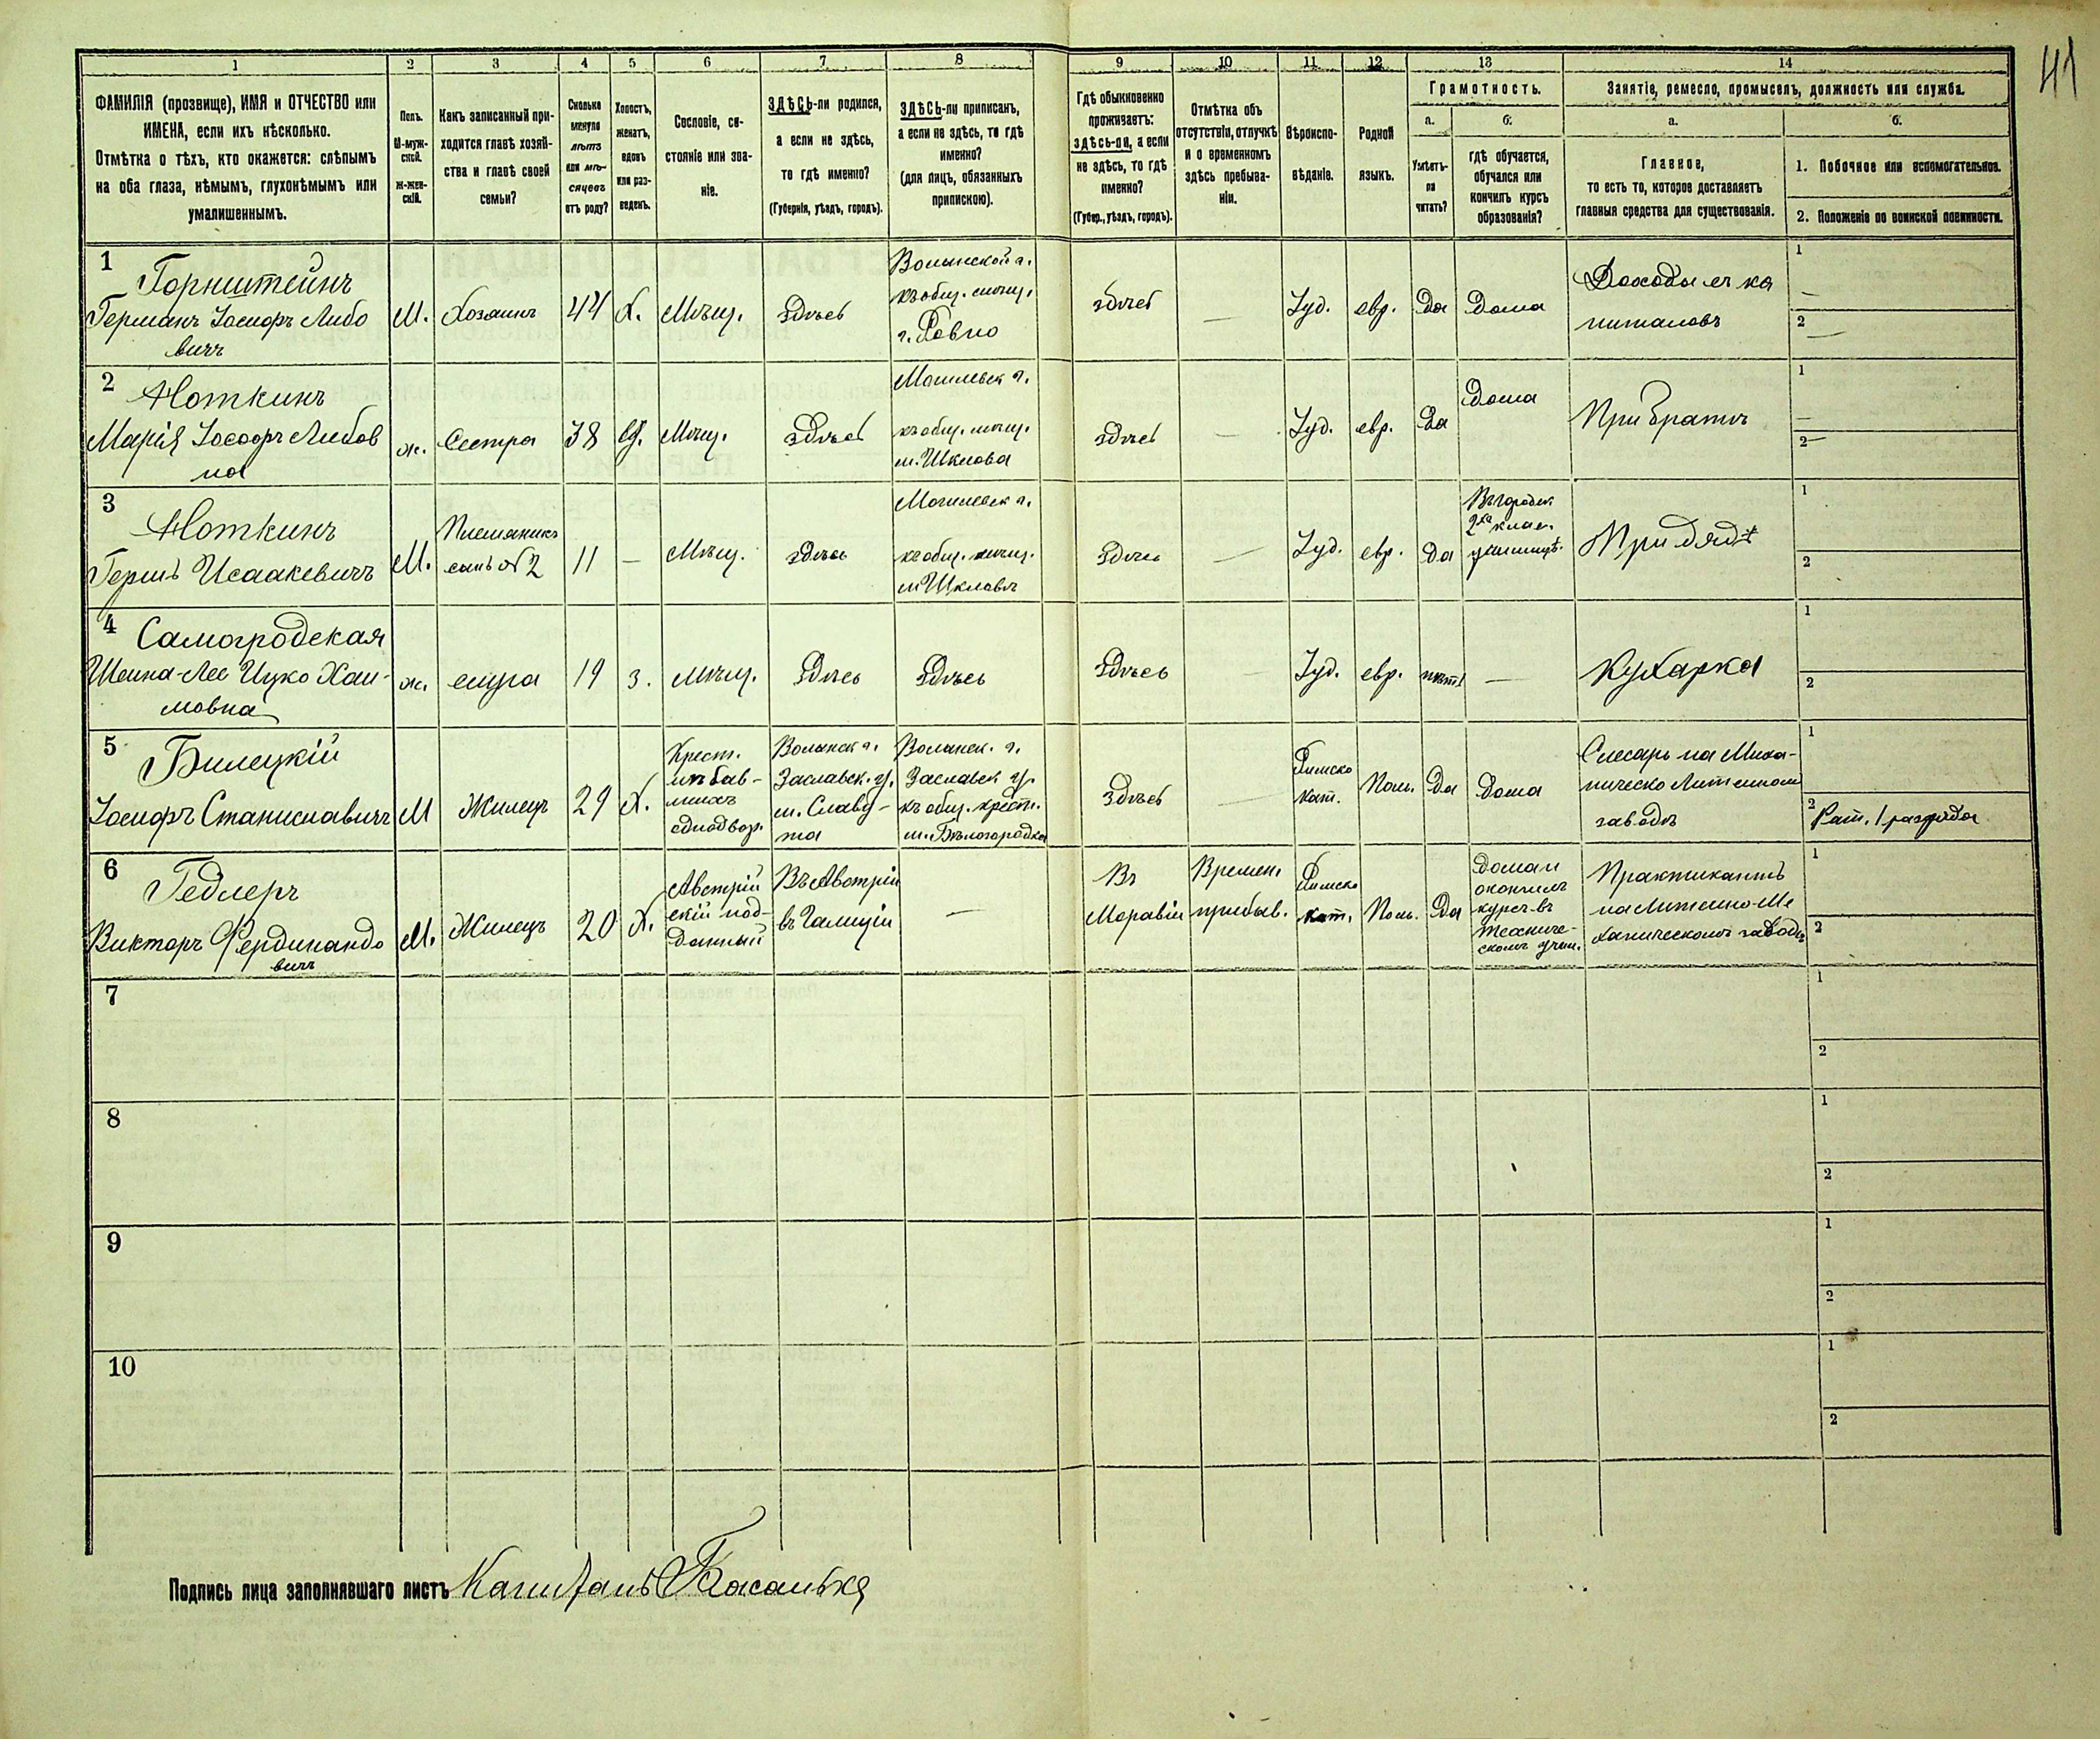 41
1 2 3 4 5 6 7 8 9 10 11 12 13 14
ФАМИЛІЯ (прозвище), ИМЯ и ОТЧЕСТВО или
ИМЕНА, если ихъ нѣсколько.
Отмѣтка о тѣхъ, кто окажется: слѣпымъ
на оба глаза, нѣмымъ, глухонѣмымъ или
умалишеннымъ.
Полъ.
М-муж-
ской.
Ж-жен-
скій.
Какъ записанный при-
ходится главѣ хозяй-
ства и главѣ своей
семьи?
Сколько
минуло
лѣтъ
или мѣ-
сяцевъ
отъ роду?
Холостъ,
женатъ,
вдовъ
или раз-
веденъ.
Сословіе, со-
стояніе или зва-
ніе.
ЗДѢСЬ-ли родился,
а если не здѣсь,
то гдѣ именно?
(Губернія, уѣздъ, городъ).
ЗДѢСЬ-ли приписанъ,
а если не здѣсь, то гдѣ
именно?
(для лицъ, обязанныхъ
припискою).
Гдѣ обыкновенно
проживаетъ:
здѣсь-ли, а если
не здѣсь, то гдѣ
именно?
(Губер., уѣздъ, городъ).
Отмѣтка объ
отсутствіи, отлучкѣ
и о временномъ
здѣсь пребыва-
ніи.
Вѣроиспо-
вѣданіе.
Родной
языкъ.
Грамотность.
а.
Умѣетъ-
ли
читать?
б.
гдѣ обучается,
обучался или
кончилъ курсъ
образованія?
Занятіе, ремесло, промыселъ, должность или служба.
а.
Главное,
то есть то, которое доставляетъ
главныя средства для существованія.
б.
1. Побочное или вспомогательное.
2. Положеніе по воинской повинности.
1
Горнштейнъ
Германъ Іосифъ Либо
вичъ
М.
Хозяинъ
44
Х.
Мѣщ.
здѣсь
Волынской г.
къ общ. мѣщ.
г. Ровно
здѣсь
—
Іуд.
евр.
Да
Дома
Доходы съ ка
питаловъ
1
—
2
—
2
Ноткинъ
Марія Іосифъ Либов
на
ж.
Сестра
38
В.
Мѣщ.
здѣсь
Могилевск г.
къ общ. мѣщ.
м. Шклова
здѣсь
—
Іуд.
евр.
Да
Дома
При братѣ
1
—
2 —
3
Ноткинъ
Гершъ Исаакевичъ
М.
Племяникъ
сынъ №2
11
—
Мѣщ.
здѣсь
Могилевск г.
къ общ. мѣщ.
м Шкловъ
здѣсь
—
Іуд.
евр.
Да
Въ городск.
2хъ клас.
училищѣ.
При дядѣ
1
2
4
Самогродская
Шеина-Лее Ицко Хаи-
мовна
ж.
слуга
19
з.
мѣщ.
Здѣсь
Здѣсь
Здѣсь
—
Іуд.
евр.
нѣтъ
—
Кухарка
1
2
5
Билецкій
Іосифъ Станиславичъ
М
Жилецъ
29
Х.
Крест.
изъ быв-
шихъ
однодвор.
Волынск г.
Заславск. у.
м. Славу-
та
Волынск. г.
Заславск у.
къ общ. крест.
м. Бѣлогородка
Здѣсь
—
Римско
кат.
Поль.
Да
Дома
Слесарь на Миха-
ническо Литейном
заводѣ
1
2
Рат. 1 разряда
6
Гедлеръ
Викторъ Фердинандо
вичъ
М.
Жилецъ
20
Х.
Австрій
скій под-
данный
Въ Австріи
въ Галиціи
—
Въ
Моравіи
Времен.
прибыв.
Римско
кат.
Поль.
Да
Дома и
окончилъ
курс въ
техниче-
скомъ учил.
Практикантъ
на Литейно-Ме
ханическомъ заводѣ
1
2
7
1
2
8
1
2
9
1
2
10
1
2
Подпись лица заполнявшаго листъ Капитанъ